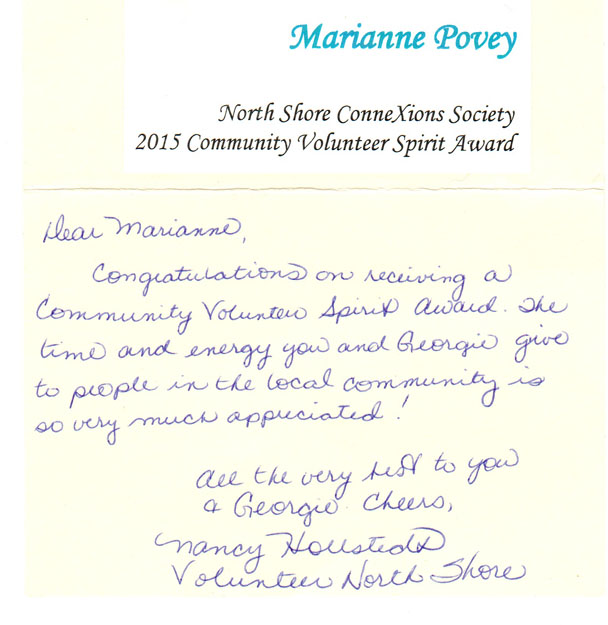 Marianne Povey
North Shore ConneXions Society
2015 Community Volunteer Spirit Award
Dear Marianne,
Congratulations on receiving a
Community Volunteer Spirit Award. The
time and energy you and Georgie give
to people in the local community is
so very much appreciated!
All the very best to you
& Georgie. Cheers,
Nancy Hollstedt
Volunteer North Shore